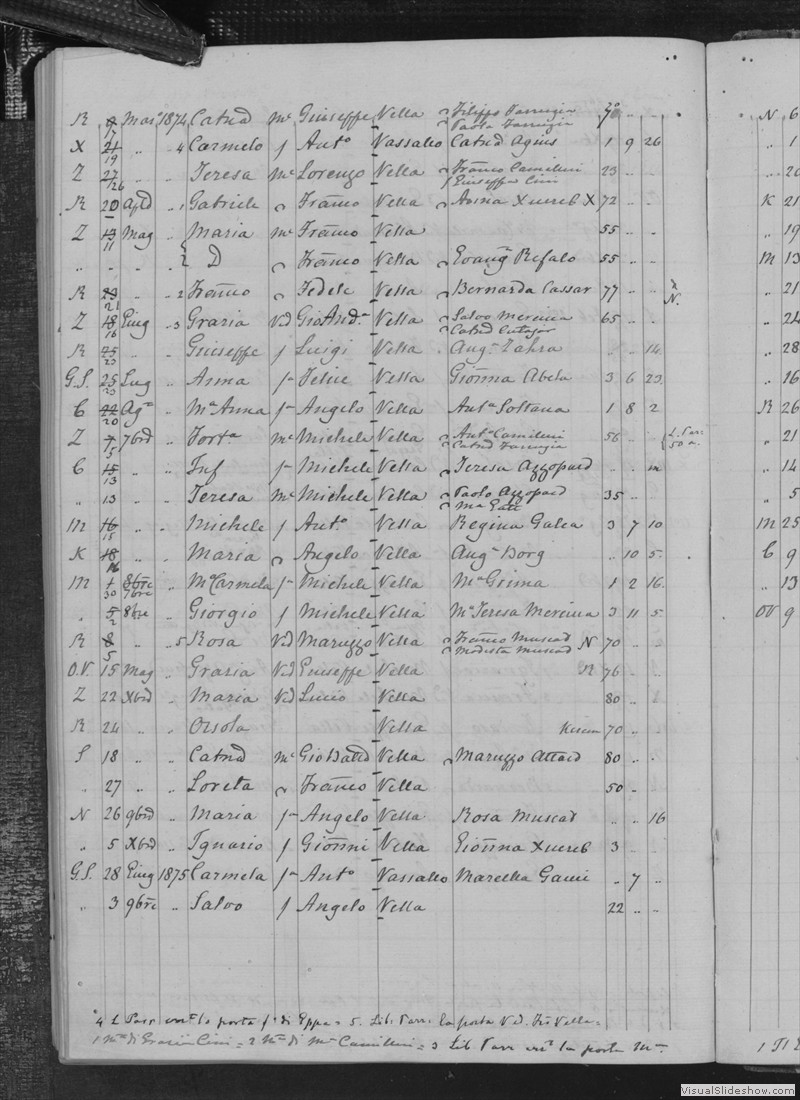 R 9 Mar 1874 Catnd mc Giuseppe Vella Filippo Farrugia 70 .. ..
17 Paola Farrugia
X 21 .. 4 Carmelo f Anto Vassallo Catnd Agius 1 9 26
19
Z 27 .. .. Teresa mc Lorenzo Vella Franco Camilleri 23 .. ..
26 Giuseppa Cini
R 20 Aple .. 1 Gabriele Franco Vella Anna Xuereb X 72 .. ..
Z 13 Mag .. Maria mc Franco Vella 55 .. ..
11
.. .. .. 2 D Franco Vella Evangta Refalo 55 .. ..
R 23 .. .. 2 Franco Fedele Vella Bernarda Cassar 77 .. .. N.
21
Z 18 Giug .. 3 Grazia Vd Gio And. Vella Salvo Mercieca 65 .. ..
16 Catnd Cutajar
R 25 .. .. Giuseppe f Luigi Vella Aug. Zahra .. .. 14
23
G.S. 25 Lug .. Anna f Felice Vella Gionna Abela 3 6 23
23
C 22 Ago .. Ma Anna f Angelo Vella Anta Soltana 1 8 2
20
Z 7 7bre .. Forta mc Michele Vella Anto Camilleri 56 .. .. L. Par:
5 Catnd Farrugia 50 a.
C 15 .. .. Inf f Michele Vella Teresa Azzopard .. .. m
13
.. 13 .. .. Teresa mc Michele Vella Paolo Azzopard 35 .. ..
Ma
M 16 .. .. Michele f Anto Vella Regina Galea 3 7 10
15
K 18 .. .. Maria Angelo Vella Aug. Borg .. 10 5
16
M 1 8bre .. Ma Carmela f Michele Vella Ma Grima 1 2 16
30 7bre
.. 5 8bre .. Giorgio f Michele Vella Ma Teresa Mercieca 3 11 5
2
R 8 .. .. 5 Rosa Vd Maruzzo Vella Franco Muscad N 70 .. ..
5 Modesta Muscad
O.V. 15 Mag .. Grazia Vd Giuseppe Vella R 76 .. ..
Z 22 Xbre .. Maria Vd Lucio Vella 80 .. ..
R 24 .. .. Orsola Vella 70 .. ..
S 18 .. .. Catnd mc Gio Batta Vella Maruzzo Attard 80 .. ..
.. 27 .. .. Loreta Franco Vella 50 ..
N 26 9bre .. Maria f Angelo Vella Rosa Muscat .. .. 16
.. 5 Xbre .. Ignazio f Gionni Vella Gionna Xuereb 3
G.S. 28 Giug 1875 Carmela f Anto Vassallo Marcella Gauci .. 7 ..
.. 3 9bre .. Salvo f Angelo Vella 22 .. ..
4 L Parr la porta fa di Gppa = 5. Lib. Parr. la porta Vd. Vella =
1 di Grazia Cini = 2 di Camilleri = 3 Lib Parr la porta
N 6
.. 1
.. 20
K 21
.. 19
M 13
.. 21
.. 24
.. 28
.. 16
R 26
.. 21
.. 14
.. 5
M 25
C 9
.. 13
OV 9
VisualSlideshow.com